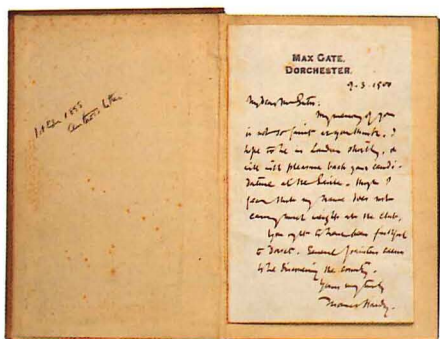 1st Edn 1895
Author's letter
MAX GATE,
DORCHESTER.
9-3-1900
My dear Mr
My memory of you
is not so faint as you think. I
hope to be in London shortly, &
will with pleasure back your candi-
dature at the Savile - though I
fear that my name does not
carry much weight at the club.
You ought to have been faithful
to Dorset. Several painters seem
to be discovering the county.
Yours very truly
Thomas Hardy.